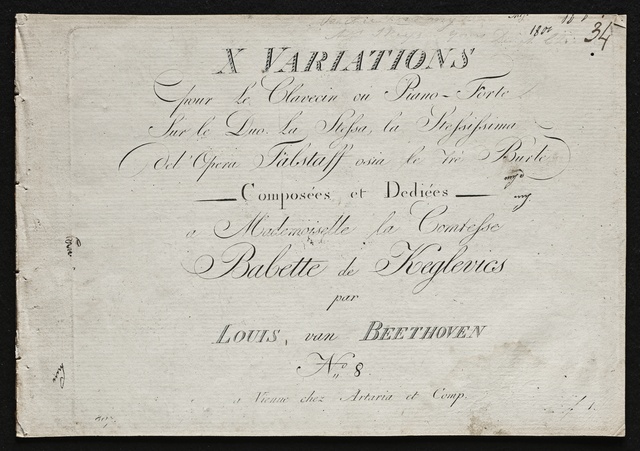 34
X VARIATIONS
pour le Clavecin ou Piano-Forte
Sur le Duo. La Stessa, la Stessissima
del'Opera Falstaff osia le tre Burle
Composées et Dediées
a Mademoiselle la Comtesse
Babette de Keglevics
par
LOUIS, van BEETHOVEN
No 8
a Vienne chez Artaria et Comp.